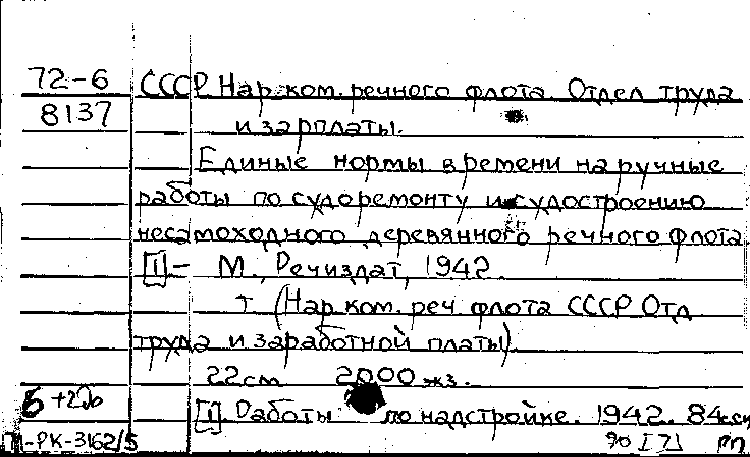 72-6 СССР Нар. ком. речного флота. Отдел труда
8137 и зарплаты.
Единые нормы времени на ручные
работы по судоремонту и судостроению
несамоходного деревянного речного флота
[1] - М., Речиздат, 1942.
т (Нар. ком. реч. флота СССР Отд
труда и заработной платы).
22 см 2000 экз.
Б
[1]. Работы по надстройке. 1942. 84
П-РК-3162/5 90 [7] РП